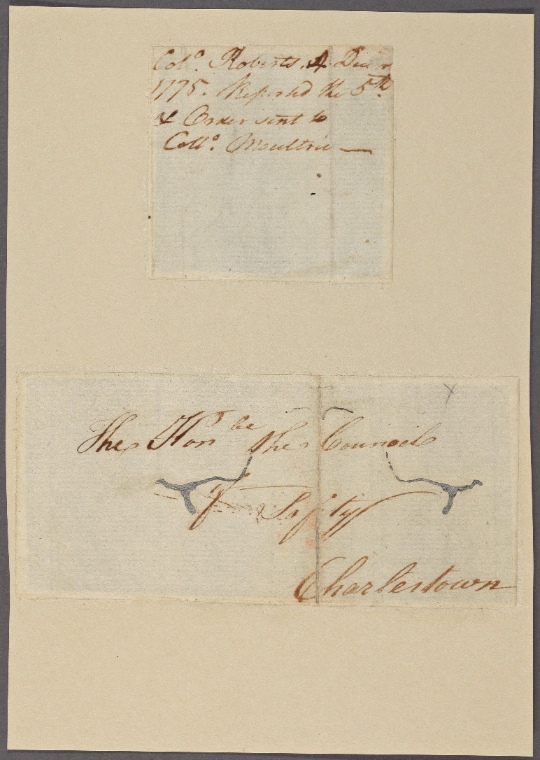 Colo. Roberts. 4 Decr
1775. Reported the 5th
& Order sent to
Collo. Moultrie —
The Honbe the Council
of Safety
Charlestown